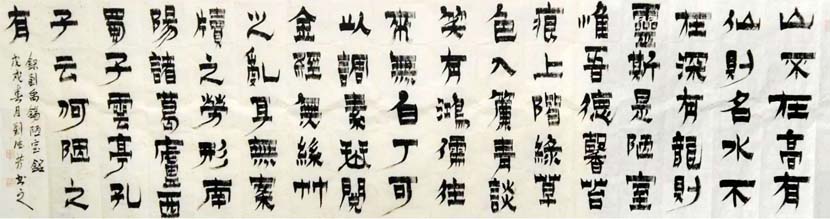 山不在高有
仙則名水不
在深有龍則
靈斯是陋室
惟吾德馨苔
痕上階綠草
色入簾青談
笑有鴻儒往
來無白丁可
以調素琴閱
金經無絲竹
之亂耳無案
牘之勞形南
陽諸葛廬西
蜀子雲亭孔
子云何陋之
有
錄劉禹錫陋室銘
戊戌春月劉芳书之